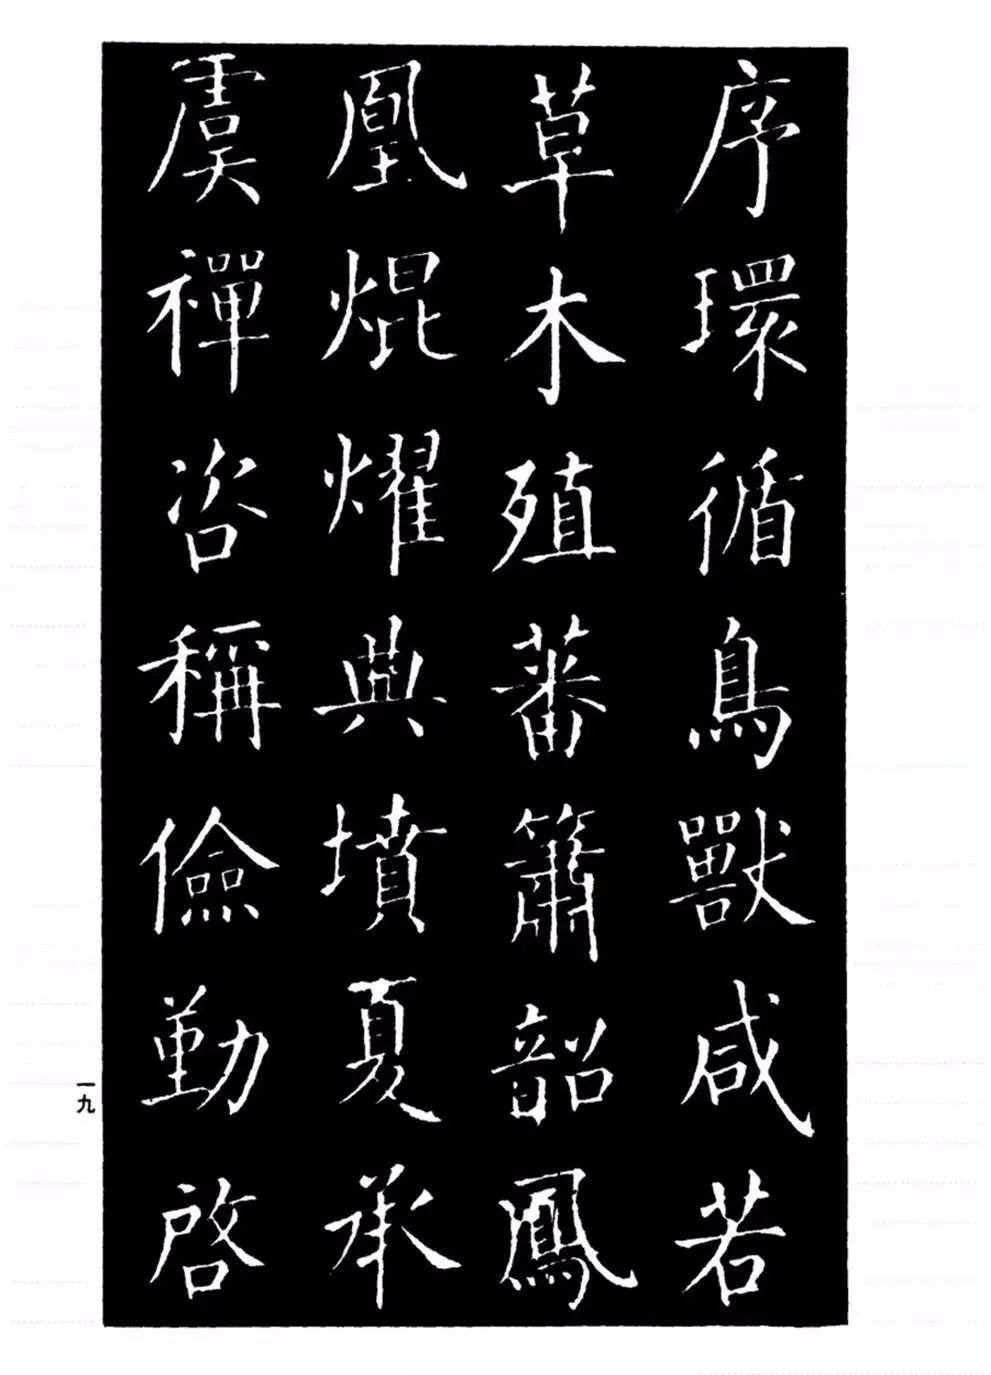 序環循鳥獸咸若
草木殖蕃簫韶鳳
凰焜燿典墳夏承
虞禪咨稱儉勤啓
一九